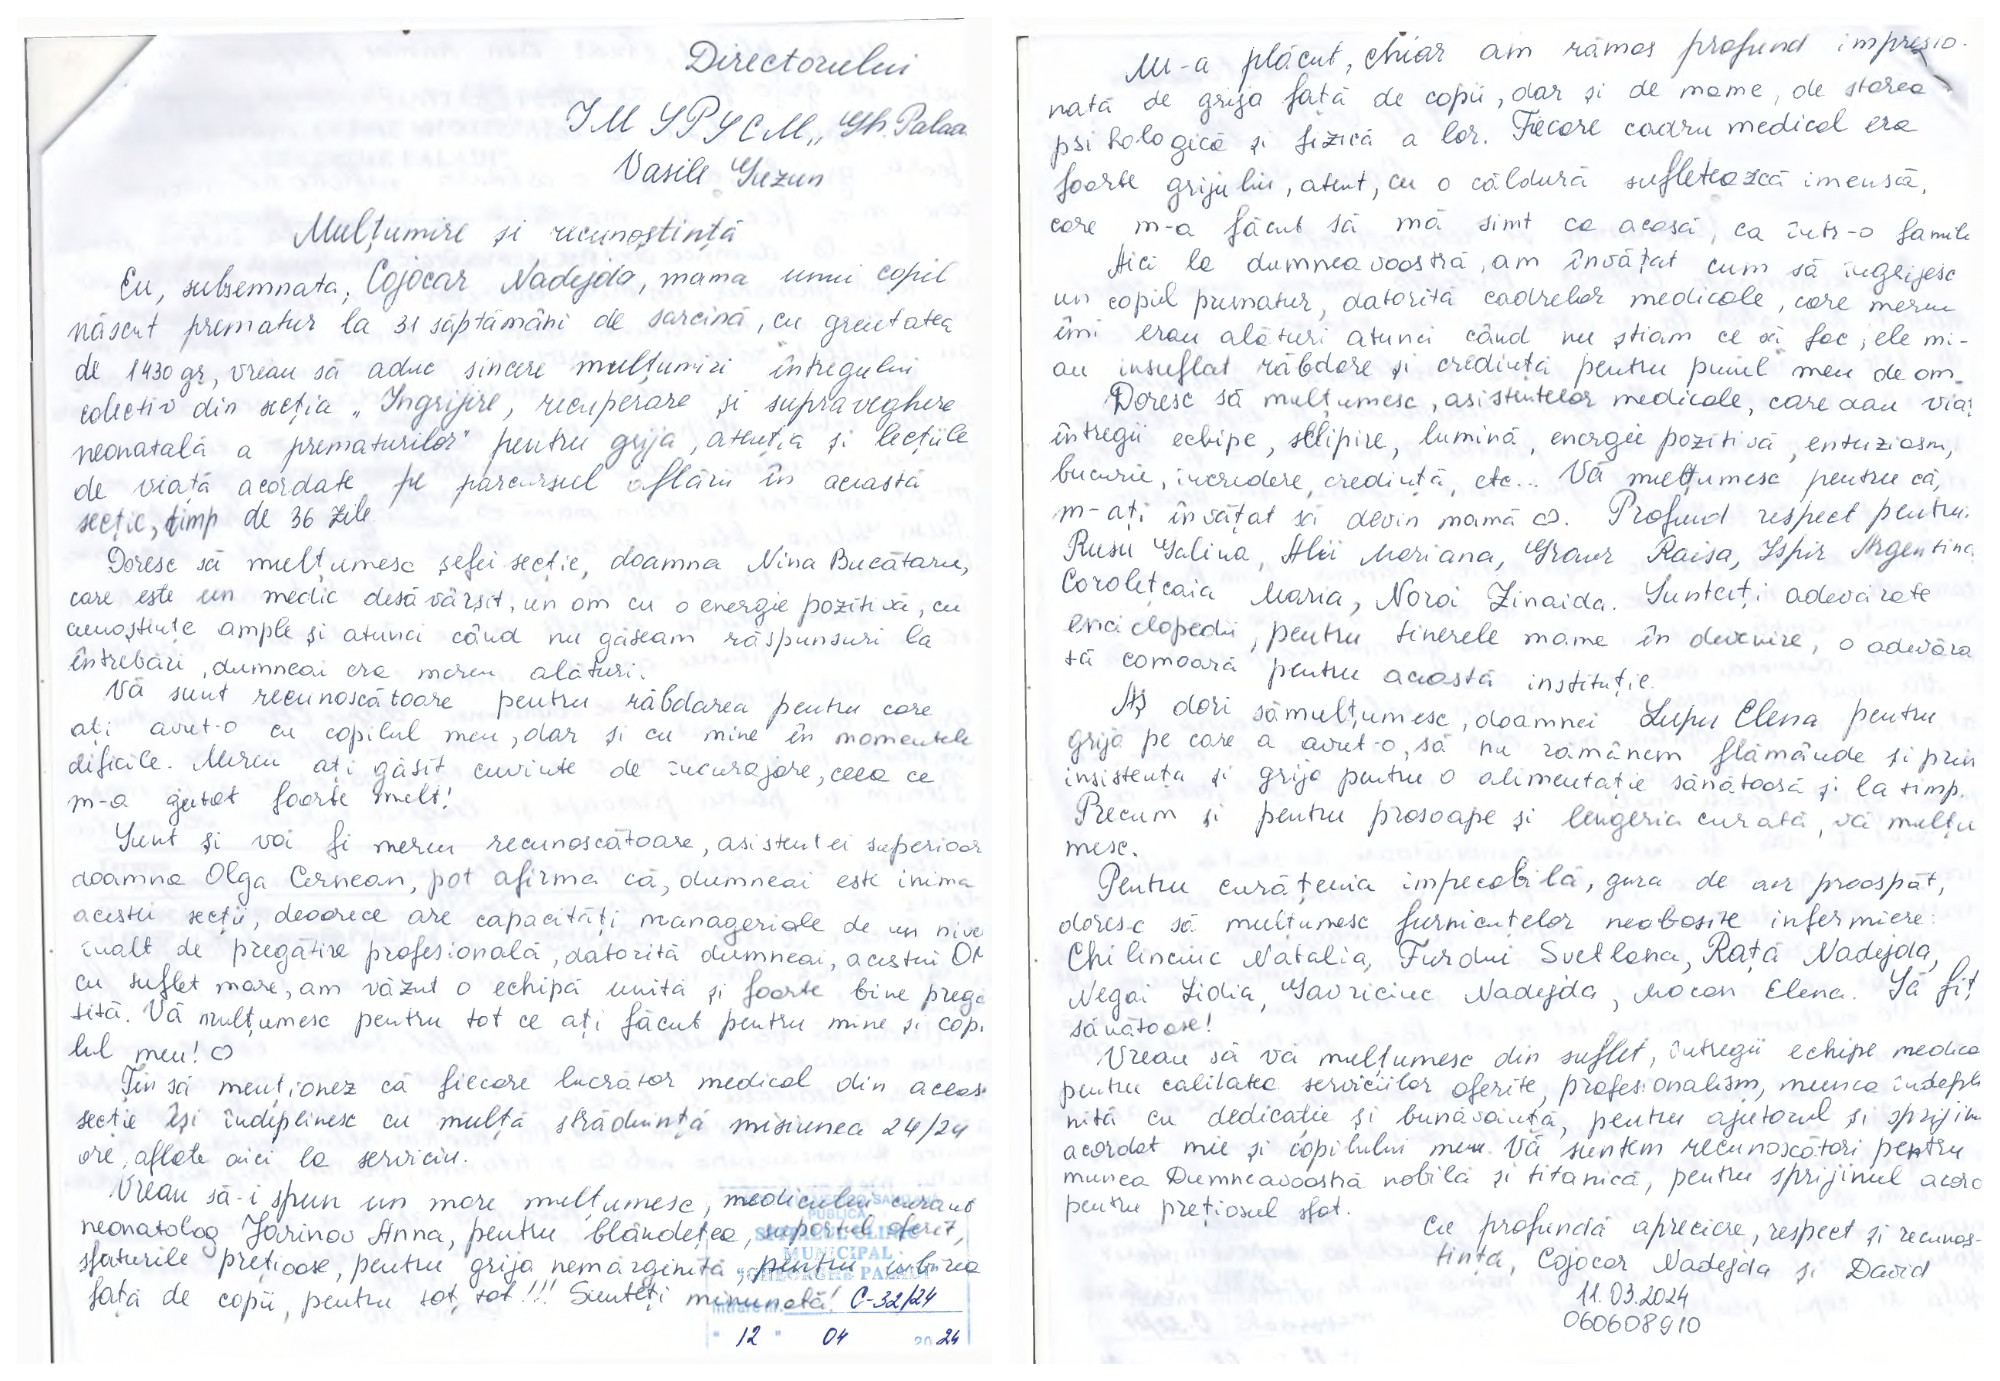 Directorului
IM SPSCM „Gh. Palad
Vasile Guzun
Mulțumire și recunoștință
Eu, subsemnata, Cojocar Nadejda, mama unui copil
născut prematur la 31 săptămâni de sarcină, cu greutatea
de 1430 gr, vreau să aduc sincere mulțumiri întregului
colectiv din secția „Îngrijire, recuperare și supraveghere
neonatală a prematurilor" pentru grija, atenția și lecțiile
de viață acordate pe parcursul aflării în această
secție, timp de 36 zile
Doresc să mulțumesc șefei secție, doamna Nina Bucătaru,
care este un medic desăvârșit, un om cu o energie pozitivă, cu
cunoștințe ample și atunci când nu găseam răspunsuri la
întrebări, dumneai era mereu alături.
Vă sunt recunoscătoare pentru răbdarea pentru care
ați avut-o cu copilul meu, dar și cu mine în momentele
dificile. Mereu ați găsit cuvinte de încurajare, ceea ce
m-a jutat foarte mult!
Sunt și voi fi mereu recunoscătoare, asistentei superioar
doamna Olga Cernean, pot afirma că, dumneai este inima
acestei secții, deoarece are capacități manageriale de un nive
înalt de pregătire profesională, datorită dumneai, acestui OM
cu suflet mare, am văzut o echipă unită și foarte bine pregă
tită. Vă mulțumesc pentru tot ce ați făcut pentru mine și copi
lul meu! ♡
Țin să menționez că fiecare lucrător medical din aceas
secție își îndeplinesc cu multă străduință misiunea 24/24
ore, aflate aici la serviciu.
Vreau să-i spun un mare mulțumesc, medicului curant
neonatolog Jarinov Anna, pentru blândețea, suportul oferit,
sfaturile prețioase, pentru grija nemărginită, pentru iubirea
față de copii, pentru tot, tot!!! Sunteți minunată!
PUBLICĂ
SPITALUL CLINIC
MUNICIPAL
"GHEORGHE PALADI"
C-32/24
" 12 " 04 2024
Mi-a plăcut, chiar am rămas profund impresio-
nată de grija față de copii, dar și de mame, de starea
psihologică și fizică a lor. Fiecare cadru medical era
foarte grijuliu, atent, cu o căldură sufletească imensă,
care m-a făcut să mă simt ca acasă, ca într-o famili
Aici la dumneavoastră, am învățat cum să îngrijesc
un copil prematur, datorită cadrelor medicale, care mereu
îmi erau alături atunci când nu știam ce să fac, ele mi-
au insuflat răbdare și credință pentru puiul meu de om.
Doresc să mulțumesc, asistentelor medicale, care dau viaț
întregii echipe, sclipire, lumină, energie pozitivă, entuziasm,
bucurie, încredere, credință, etc... Vă mulțumesc pentru că,
m-ați învățat să devin mamă ♡. Profund respect pentru:
Rusu Galina, Alii Mariana, Graur Raisa, Ispir Argentina
Corolețcaia Maria, Noroi Zinaida. Sunteți adevărate
enciclopedii, pentru tinerele mame în devenire, o adevăra
tă comoară pentru această instituție.
Aș dori sămulțumesc, doamnei Lupu Elena pentru
grija pe care a avut-o, să nu rămânem flămânde și prin
insistența și grija pentru o alimentație sănătoasă și la timp.
Precum și pentru prosoape și lengeria curată, vă mulțu
mesc.
Pentru curățenia impecabilă, gura de aer proaspăt,
doresc să mulțumesc furnicuțelor neobosite infermiere:
Chilinciuc Natalia, Furdui Svetlana, Rață Nadejda,
Negai Lidia, Gavriciuc Nadejda, Mocan Elena. Să fiț
sănătoase!
Vreau să vă mulțumesc din suflet, întregii echipe medica
pentru calitatea serviciilor oferite, profesionalism, munca îndepli
nită cu dedicație și bunăvoință, pentru ajutorul și sprijin
acordat mie și copilului meu. Vă suntem recunoscători pentru
munca Dumneavoastră nobilă și titanică, pentru sprijinul acord
pentru prețiosul sfat.
Cu profundă apreciere, respect și recunoș-
tință, Cojocar Nadejda și David
11.03.2024
060608910